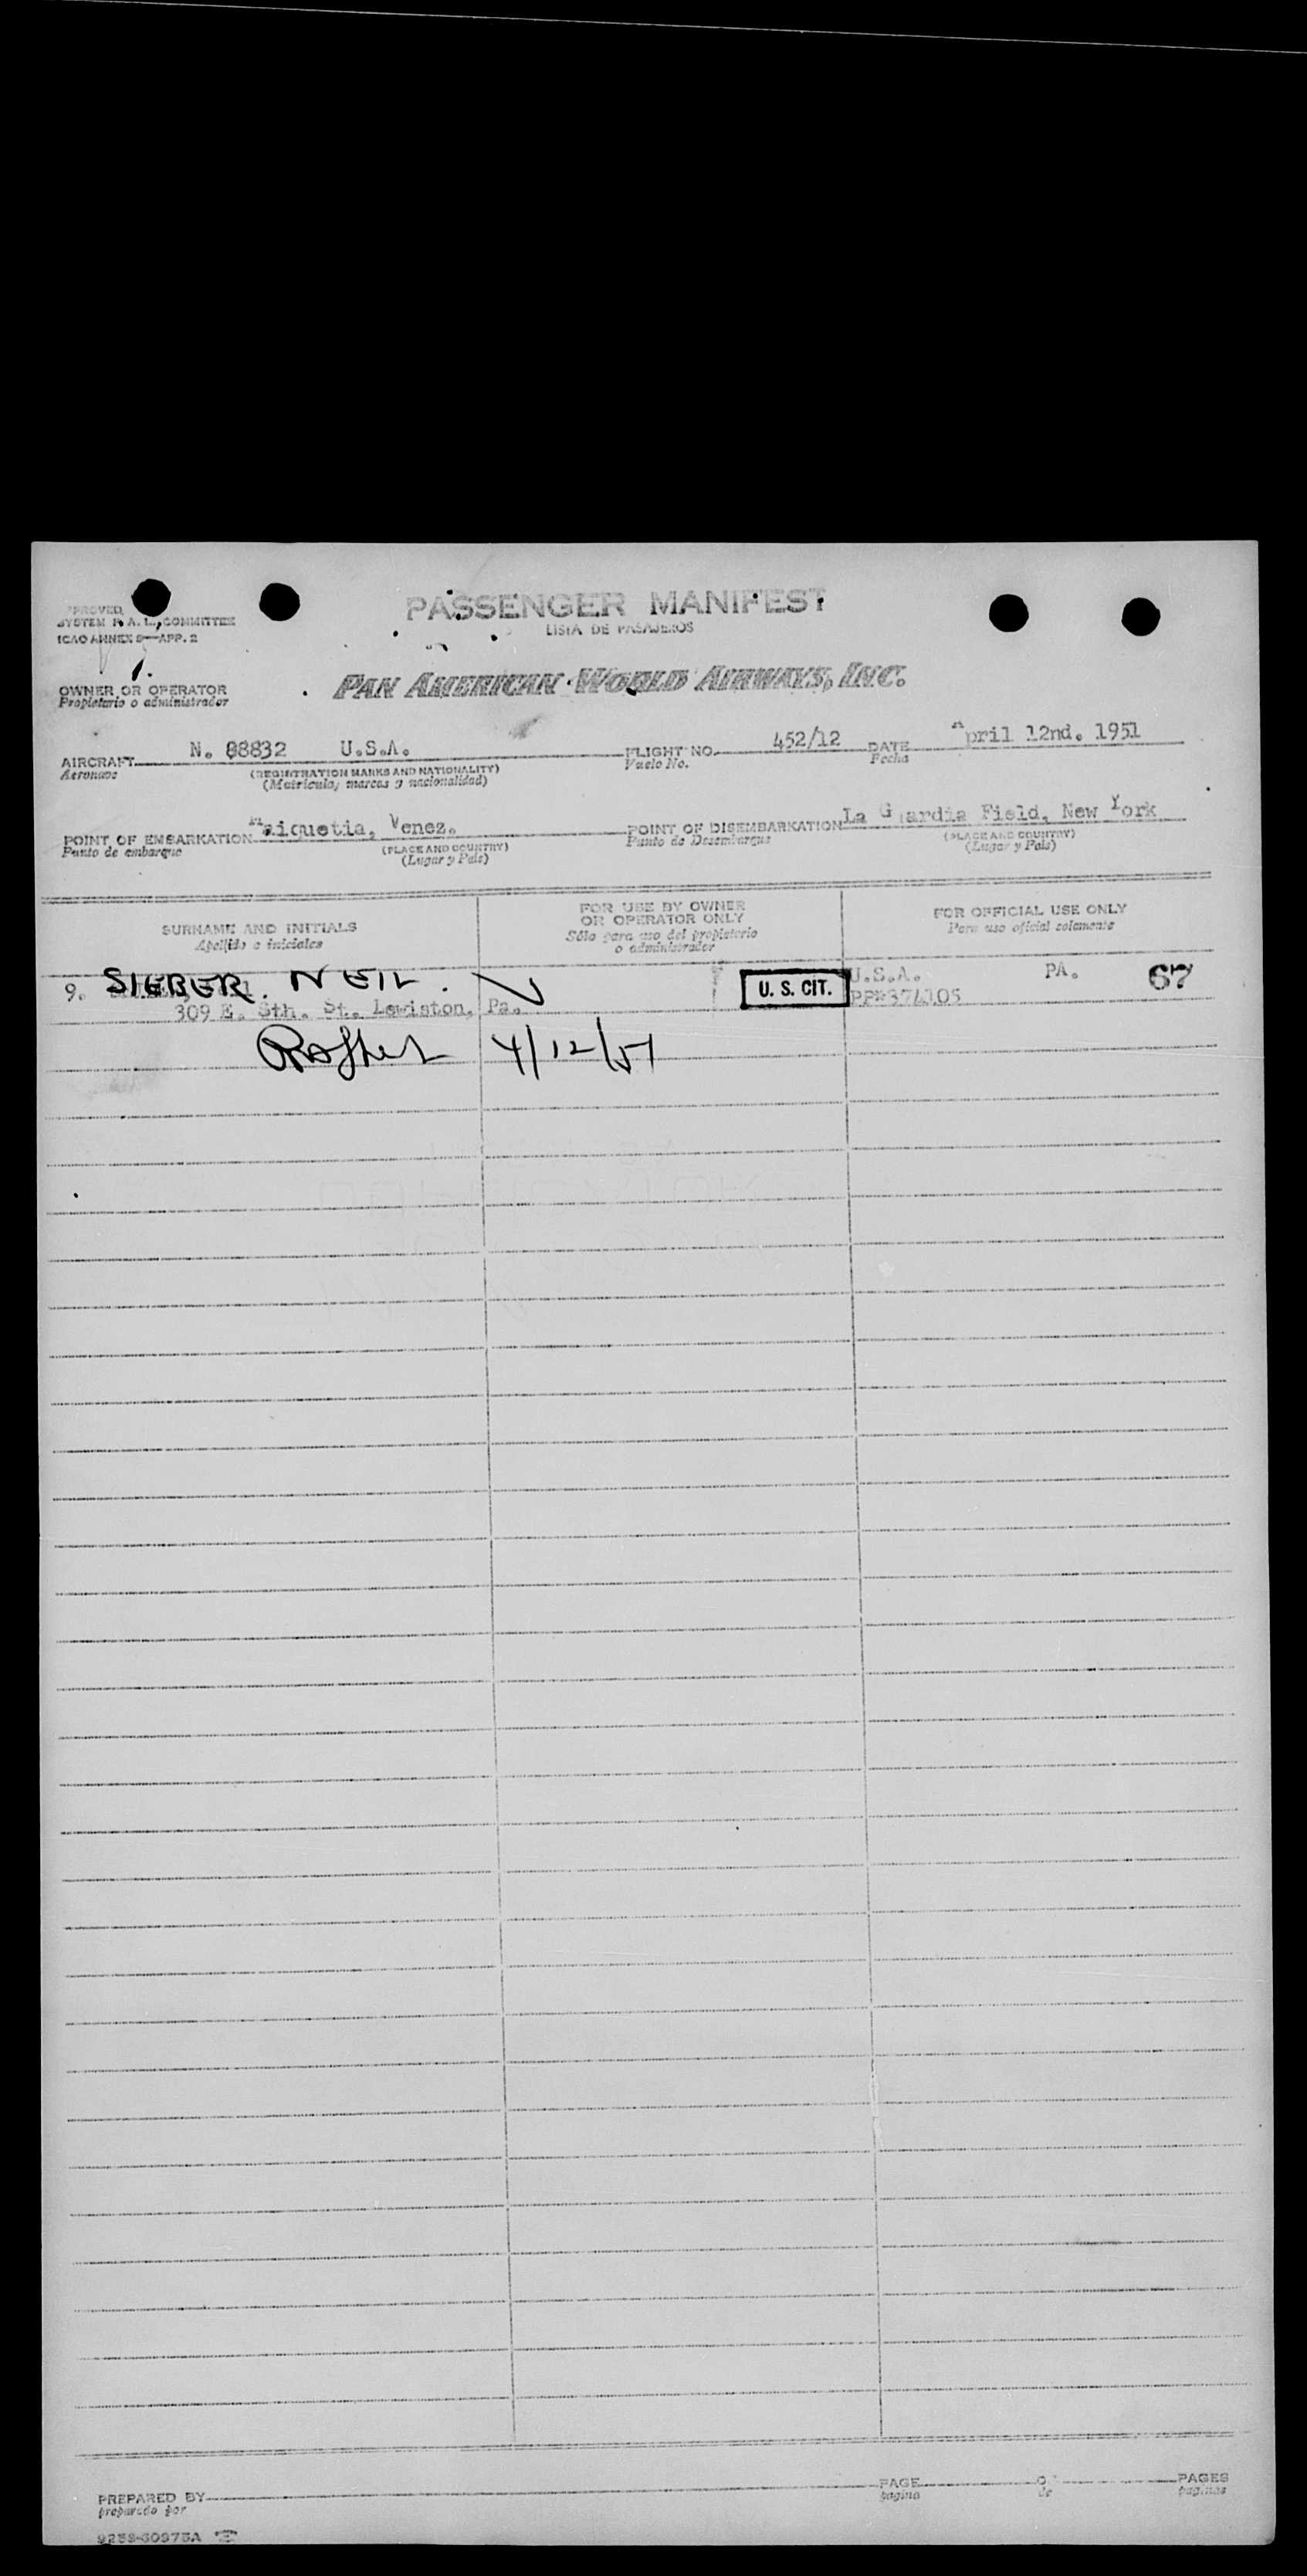 PASSENGER MANIFEST
LISTA DE PASAJEROS
SYSTEM F. A. L. COMMITTEE
ICAO ANNEX 9—APP. 2
OWNER OR OPERATOR
Propietario o administrador
PAN AMERICAN WORLD AIRWAYS, INC.
AIRCRAFT N. 88832 U.S.A. FLIGHT NO. 452/12 DATE April 12nd. 1951
Aeronave (REGISTRATION MARKS AND NATIONALITY) Vuelo No. Fecha
(Matricula, marcas y nacionalidad)
POINT OF EMBARKATION Maiquetia, Venez. POINT OF DISEMBARKATION La G ardia Field, New York
Punto de embarque (PLACE AND COUNTRY) Punto de Desembarque (PLACE AND COUNTRY)
(Lugar y País) (Lugar y País)
SURNAME AND INITIALS FOR USE BY OWNER OR OPERATOR ONLY FOR OFFICIAL USE ONLY
Apellido e iniciales Sólo para uso del propietario o administrador Para uso oficial solamente
9. SIEBER. NEIL. U. S. CIT. U.S.A. PA. 67
309 E. 5th. St. Lewiston, Pa. PP#374105
4/12/51
PREPARED BY PAGE OF PAGES
preparado por pagina de paginas